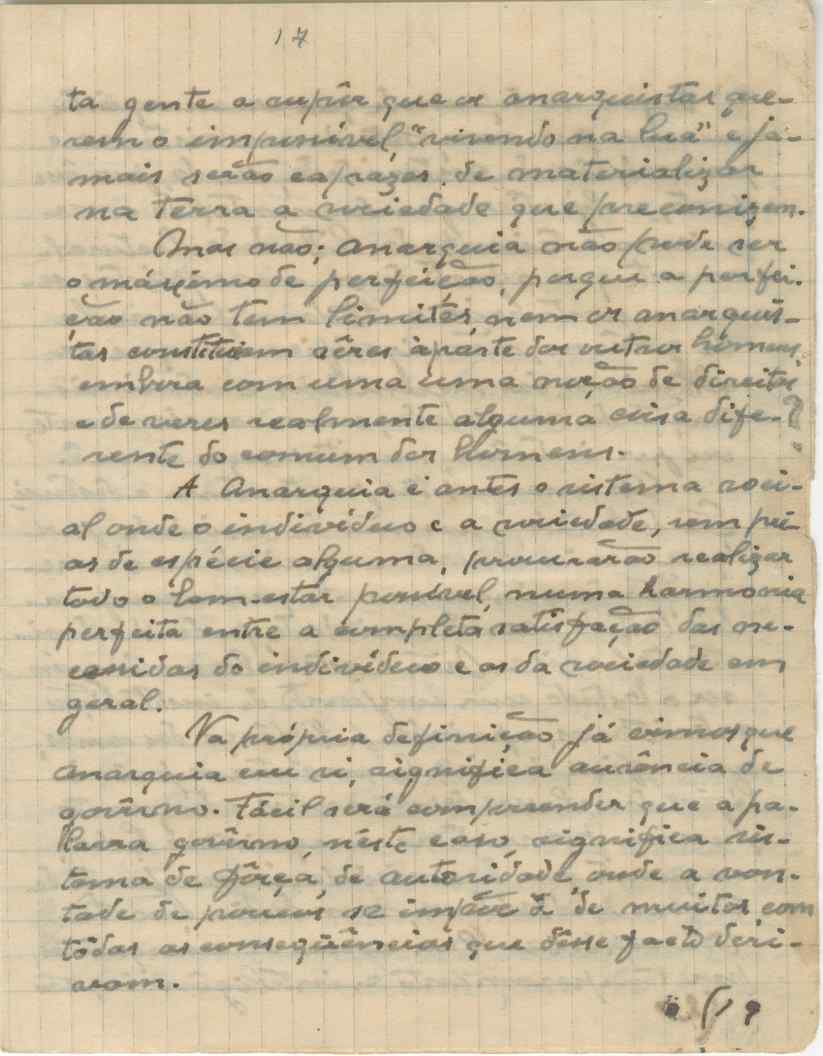 17
ta gente a supôr que os anarquistas que-
rem o impossível "vivendo na lua" e ja-
mais serão capazes de materializar
na Terra a sociedade que preconizam.
Mas não; Anarquia não pode ser
o máximo de perfeição, porque a perfei-
ção não tem limites, nem os anarquis-
tas constituem sêres àparte dos outros homens
embora com uma uma noção de direitos
e deveres realmente alguma coisa dife-
rente do comum dos homens.
A Anarquia é antes o sistema soci-
al onde o indivíduo e a sociedade, sem pei-
as de espécie alguma, procurarão realizar
todo o bem-estar possível, numa harmonia
perfeita entre a completa satisfação das ne-
cessidas do indivíduo e as da sociedade em
geral.
Na própria definição já vimos que
anarquia em si, significa ausência de
govêrno. Fácil será compreender que a pa-
lavra govêrno, nêste caso, significa sis-
tema de fôrça, de autoridade, onde a von-
tade de poucos se impõe à de muitos, com
tôdas as conseqüências que dêsse facto deri-
vam.